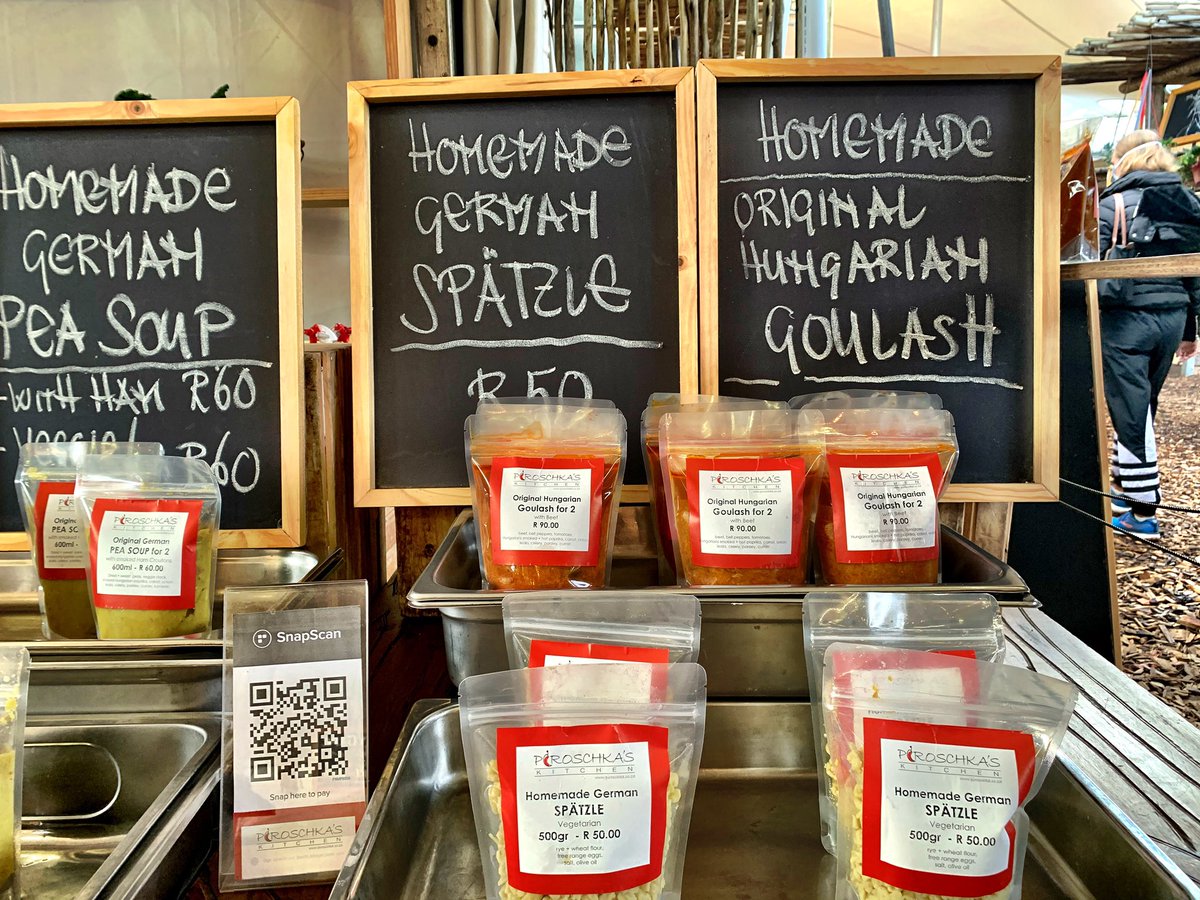 HOMEMADE
GERMAN
PEA SOUP
-WITH HAM R60
R60
HOMEMADE
GERMAN
SPÄTZLE
R50
HOMEMADE
ORIGINAL
HUNGARIAN
GOULASH
PIROSCHKA'S
Original
PEA SO
PIROSCHKA'S
KITCHEN
Original German
PEA SOUP for 2
600ml - R 60.00
PIROSCHKA'S
KITCHEN
Original Hungarian
Goulash for 2
with Beef
R 90.00
beef, bell peppers, tomatoes
PIROSCHKA'S
KITCHEN
Original Hungarian
Goulash for 2
with Beef
R 90.00
beef, bell peppers, tomatoes
PIROSCHKA'S
KITCHEN
Original Hungarian
Goulash for 2
with Beef
R 90.00
beef, bell peppers, tomatoes
SnapScan
Snap here to pay
PIROSCHKA'S
KITCHEN
PIROSCHKA'S
KITCHEN
Homemade German
SPÄTZLE
Vegetarian
500gr - R 50.00
rye + wheat flour,
free range eggs,
salt, olive oil
PIROSCHKA'S
KITCHEN
Homemade German
SPÄTZLE
Vegetarian
500gr - R 50.00
rye + wheat flour,
free range eggs,
salt, olive oil